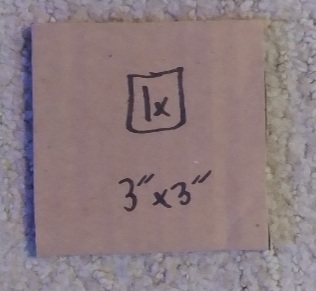 1x
3"x3"